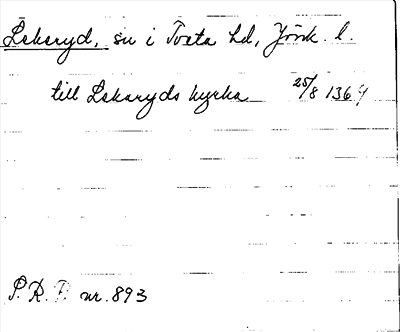 Lekeryd, sn i Tveta hd, Jönk. l.
till Lekaryds kyrka 25/8 1364
P. R. P. nr. 893